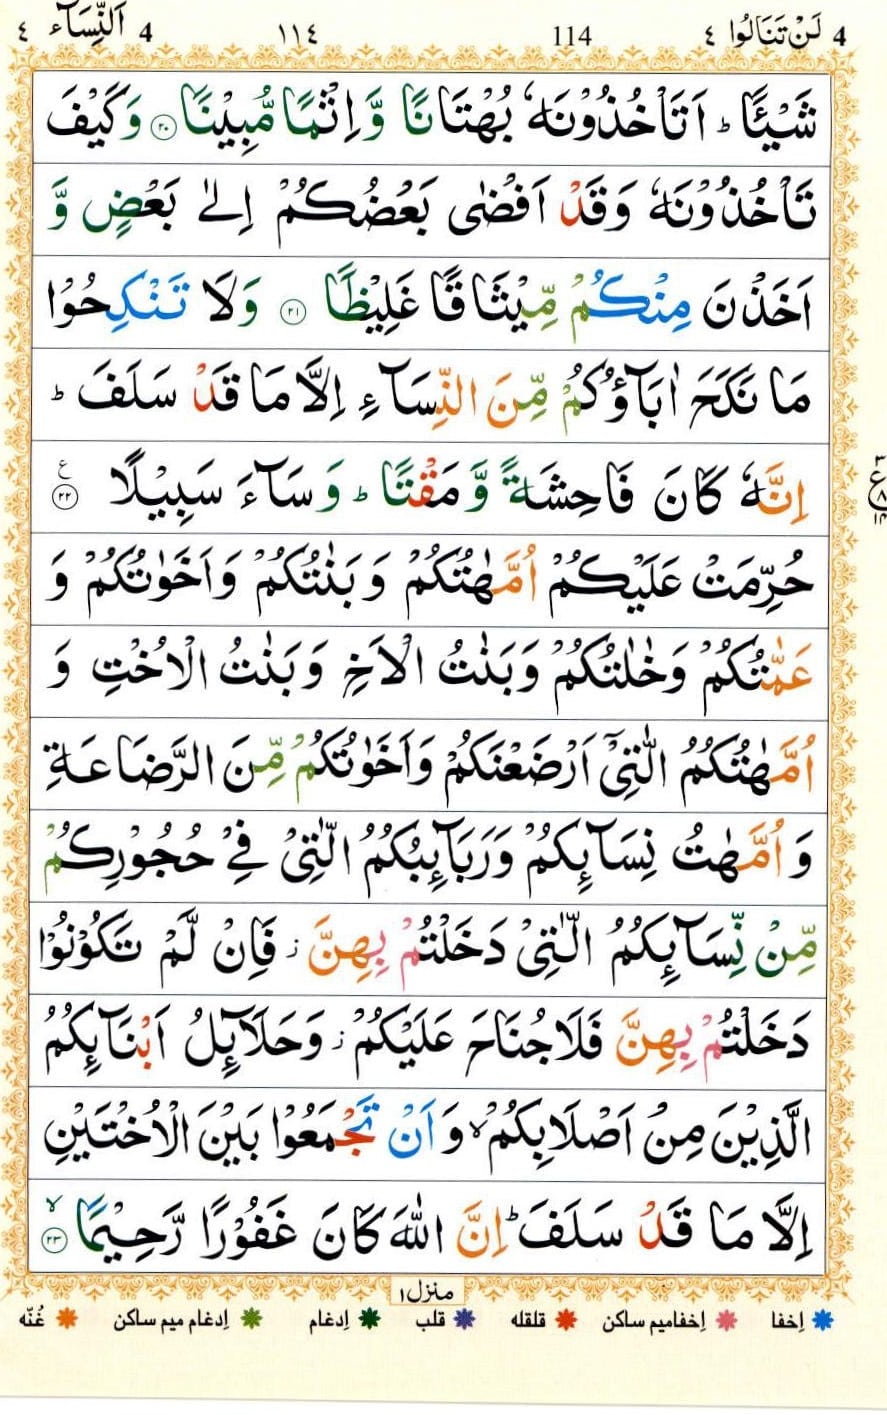 4 لَنْ تَنَالُوا ٤ 114 ١١٤ 4 اَلنِّسَآء ٤
شَيْـًٔا ؕ اَتَاْخُذُوْنَهٗ بُهْتَانًا وَّ اِثْمًا مُّبِيْنًا ﴿۲۰﴾ وَكَيْفَ
تَاْخُذُوْنَهٗ وَقَدْ اَفْضٰى بَعْضُكُمْ اِلٰى بَعْضٍ وَّ
اَخَذْنَ مِنْكُمْ مِّيْثَاقًا غَلِيْظًا ﴿۲۱﴾ وَلَا تَنْكِحُوْا
مَا نَكَحَ اٰبَآؤُكُمْ مِّنَ النِّسَآءِ اِلَّا مَا قَدْ سَلَفَ ؕ
اِنَّهٗ كَانَ فَاحِشَةً وَّ مَقْتًا ؕ وَ سَآءَ سَبِيْلًا ﴿۲۲﴾ ع
٣ ع ٨ ١٤
حُرِّمَتْ عَلَيْكُمْ اُمَّهٰتُكُمْ وَ بَنٰتُكُمْ وَاَخَوٰتُكُمْ وَ
عَمّٰتُكُمْ وَخٰلٰتُكُمْ وَبَنٰتُ الْاَخِ وَبَنٰتُ الْاُخْتِ وَ
اُمَّهٰتُكُمُ الّٰتِيْۤ اَرْضَعْنَكُمْ وَاَخَوٰتُكُمْ مِّنَ الرَّضَاعَةِ
وَ اُمَّهٰتُ نِسَآئِكُمْ وَرَبَآئِبُكُمُ الّٰتِيْ فِيْ حُجُوْرِكُمْ
مِّنْ نِّسَآئِكُمُ الّٰتِيْ دَخَلْتُمْ بِهِنَّ ز فَاِنْ لَّمْ تَكُوْنُوْا
دَخَلْتُمْ بِهِنَّ فَلَا جُنَاحَ عَلَيْكُمْ ز وَحَلَآئِلُ اَبْنَآئِكُمُ
الَّذِيْنَ مِنْ اَصْلَابِكُمْ ۙ وَ اَنْ تَجْمَعُوْا بَيْنَ الْاُخْتَيْنِ
اِلَّا مَا قَدْ سَلَفَ ؕ اِنَّ اللّٰهَ كَانَ غَفُوْرًا رَّحِيْمًا ﴿۲۳﴾ ۙ
منزل ١
اِخفا اِخفامیم ساکن قلقله قلب اِدغام اِدغام میم ساکن غُنّه